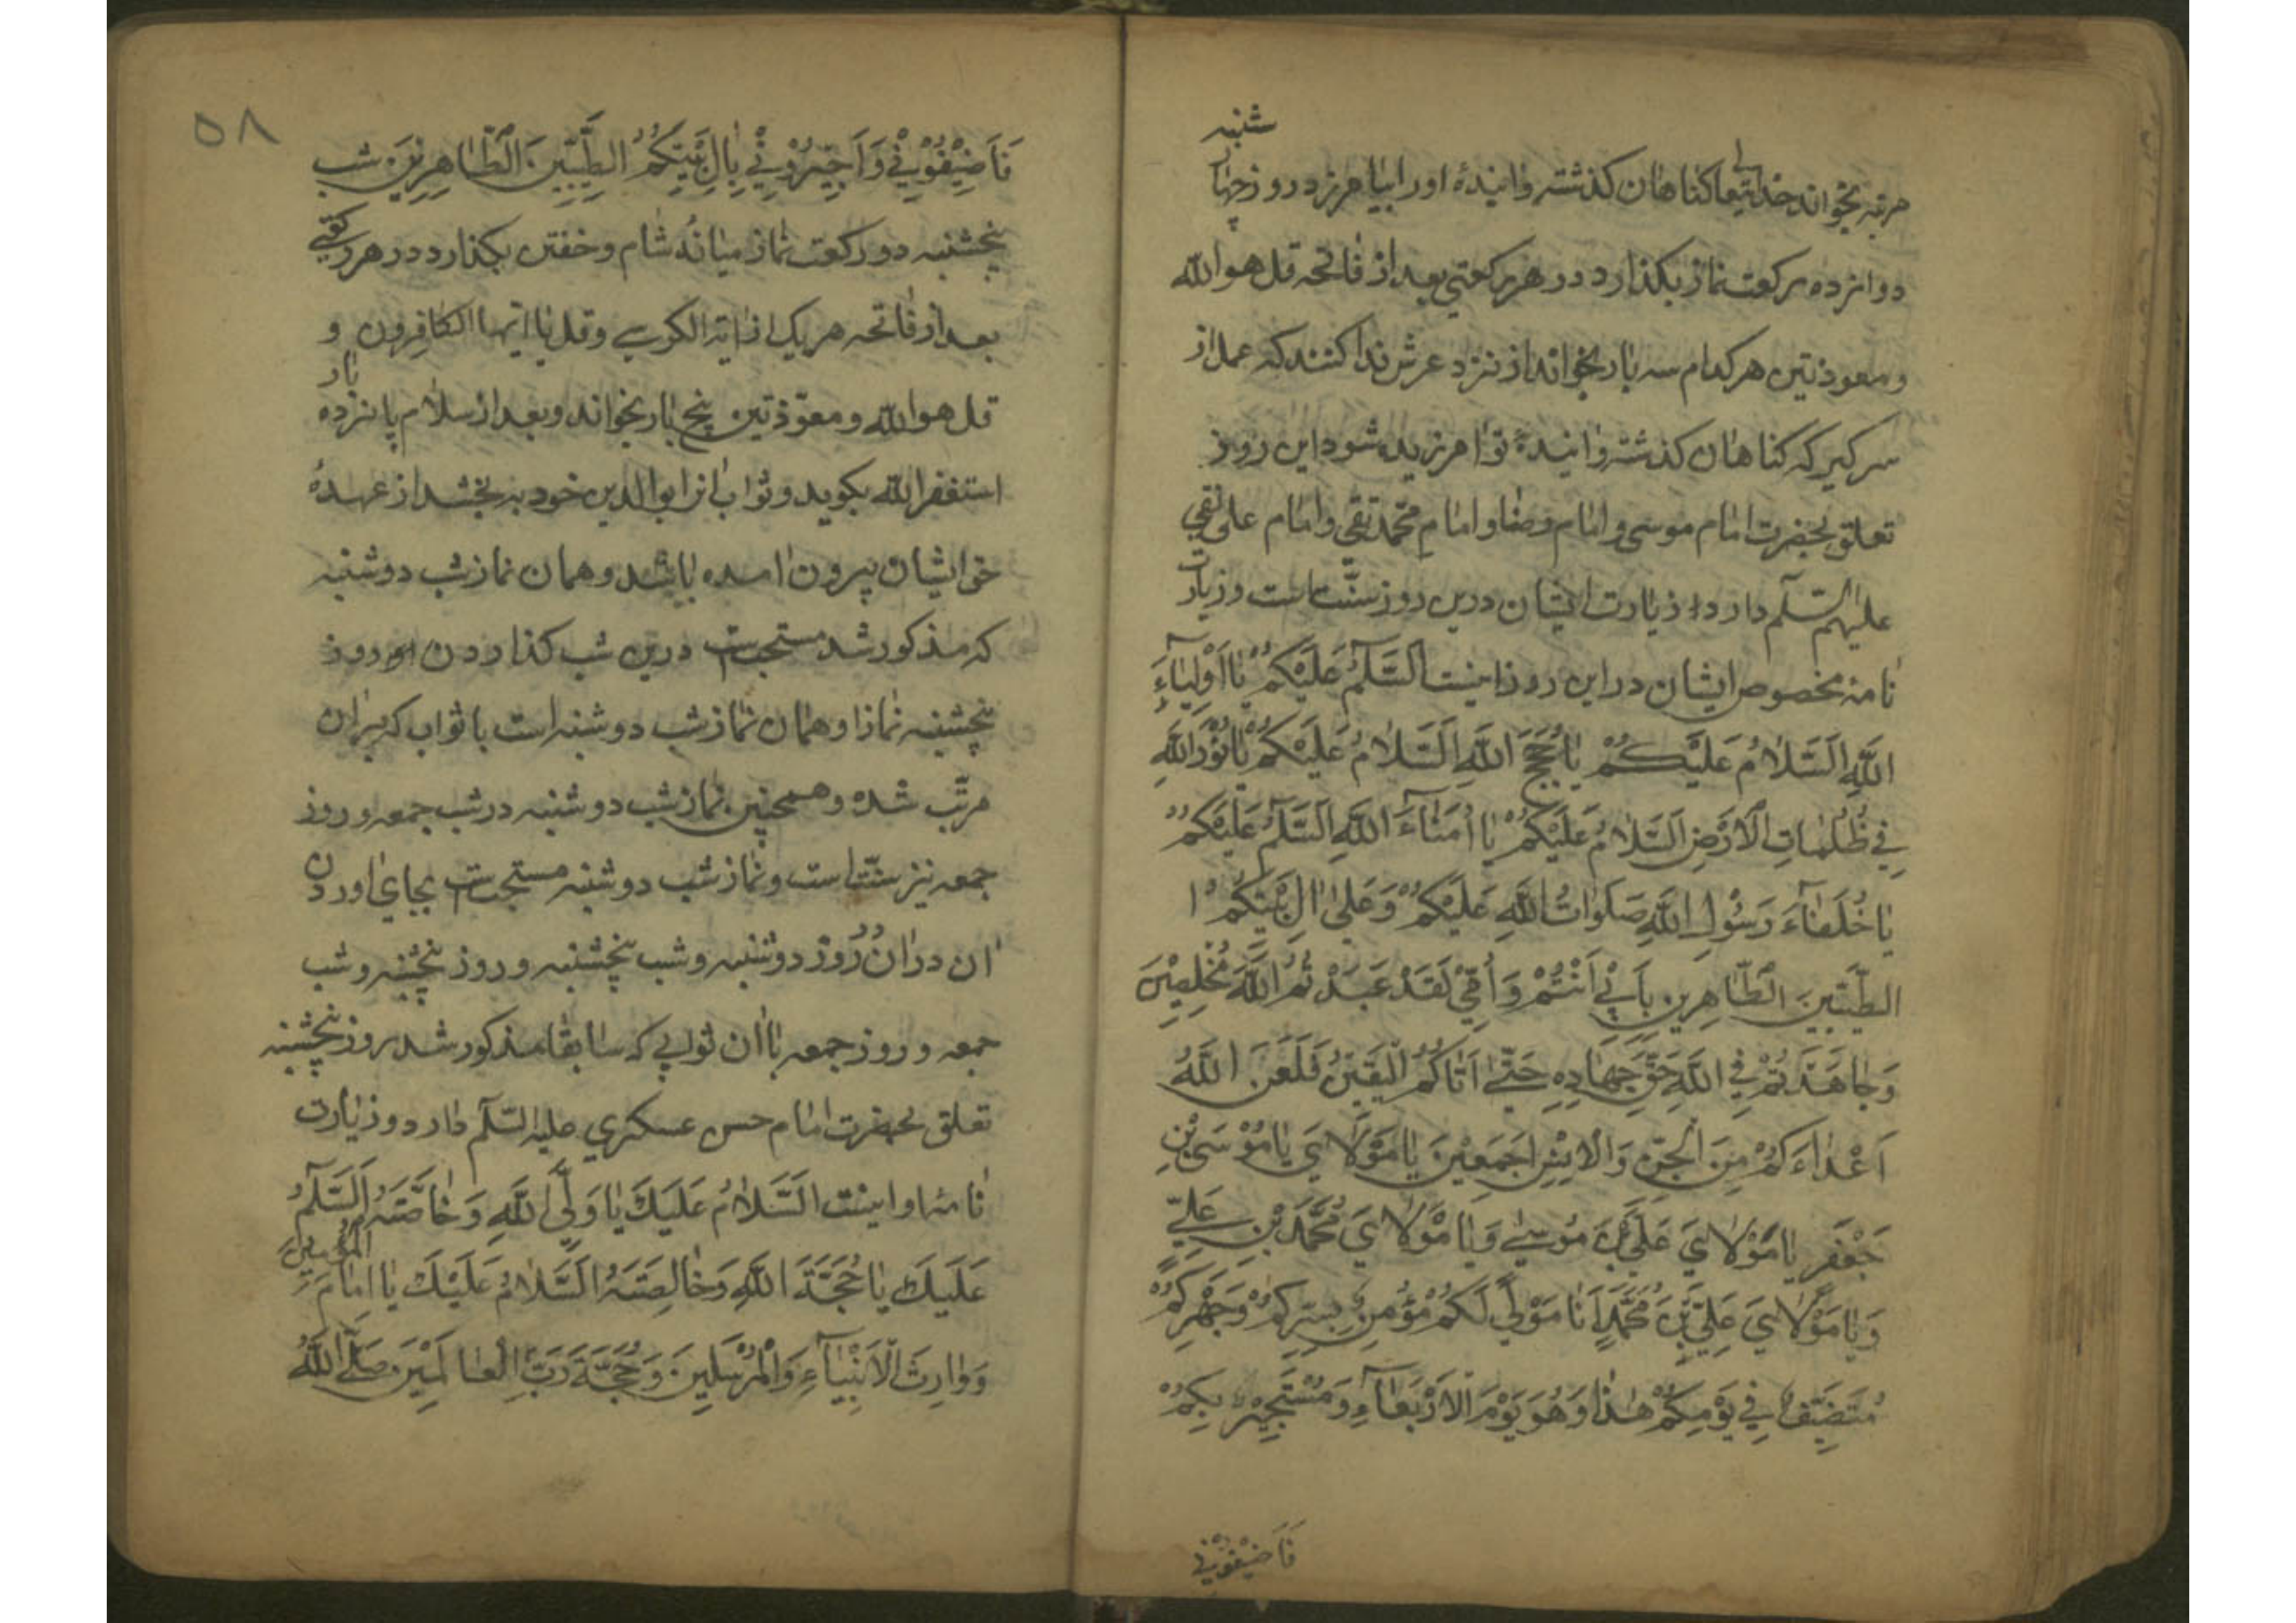 شنبه
مرتبه بخواند خدایتعالی کناهان کذشته وایندهٔ اورا بیامرزد روز چهار
دوازده رکعت نماز بکذارد در هر رکعتی بعد از فاتحه قل هو الله
ومعوذتین هر کدام سه بار بخواند از نزد عرش ندا کنند که عمل از
سر کیر که کناهان کذشته وایندهٔ تو امرزیده شود این روز
تعلق بحضرت امام موسی وامام رضا وامام محمد تقی وامام علی نقی
علیهم السّلم دارد و زیارت ایشان درین روز سنّت است وزیارت
نامهٔ مخصوص ایشان در این روز اینست اَلسَّلَمُ عَلَیْکُمْ یٰا اَوْلِیٰآءَ
اللّٰهِ اَلسَّلٰامُ عَلَیْکُمْ یٰا حُجَجَ اللّٰهِ اَلسَّلٰامُ عَلَیْکُمْ یٰا نُوْرَ اللّٰهِ
فِي ظُلُمٰاتِ الْاَرْضِ اَلسَّلٰامُ عَلَیْکُمْ یٰا اُمَنٰآءَ اللّٰهِ اَلسَّلَمُ عَلَیْکُمْ
یٰا خُلَفٰآءَ رَسُوْلِ اللّٰهِ صَلَوٰاتُ اللّٰهِ عَلَیْکُمْ وَعَلیٰ اٰلِ بَیْتِکُمُ ا
الطَّیِّبِیْنَ الطّٰاهِرِینَ بِاَبِيْ اَنْتُمْ وَ اُمِّيْ لَقَدْ عَبَدْتُمُ اللّٰهَ مُخْلِصِیْنَ
وَجٰاهَدْتُمْ فِي اللّٰهِ حَقَّ جِهٰادِهِ حَتّیٰ اَتٰاکُمُ الْیَقِیْنُ فَلَعَنَ اللّٰهُ
اَعْدٰاءَکُمْ مِنَ الْجِنِّ وَالْاِنْسِ اَجْمَعِیْنَ یٰا مَوْلٰايَ یٰا مُوْسَی بْنِ
جَعْفَرٍ یٰا مَوْلٰايَ عَلَيَّ بْنَ مُوْسیٰ وَیٰا مَوْلٰايَ مُحَمَّدَ بْنِ عَلِیّ
وَیٰا مَوْلٰايَ عَلِيَّ بْنَ مُحَمَّدٍ اَنَا مَوْلًي لَکُمْ مُؤْمِنٌ بِسِرِّکُمْ وَجَهْرِکُمْ
مُتَضَیِّفٌ فِي یَوْمِکُمْ هٰذٰا وَهُوَ یَوْمَ الْاَرْبَعٰآءِ وَمُسْتَجِیْرٌ بِکُمْ
فَاَضِیْفُوْنِيْ
٥٨
فَاَضِیْفُوْنِيْ وَ اَجِیْرُوْنِيْ بِاٰلِ بَیْتِکُمُ الطَّیِّبِیْنَ الطّٰاهِرِیْنَ شب
پنچشنبه دو رکعت نماز میانهٔ شام وخفتن بکذارد در هر رکعتی
بعد از فاتحه هر یک از ایة الکرسے وقل یا ایها الکافرون و
قل هو الله ومعوّذتین پنج بار بخواند وبعد از سلام پانزده بار
استغفر الله بکوید وثواب انرا بوالدین خود به بخشد از عهدهٔ
حق ایشان بیرون امده باشد وهمان نماز شب دوشنبه
که مذکور شد مستحب است درین شب کذاردن او روز
پنچشنبه نماز او همان نماز شب دوشنبه است با ثواب که بران
مرتّب شده وهمچنین نماز شب دوشنبه در شب جمعه و روز
جمعه نیز سنّت است ونماز شب دوشنبه مستحب است بجای اوردن
ان در ان روز دوشنبه وشب پنچشنبه و روز پنچشنبه وشب
جمعه و روز جمعه با ان ثوابی که سابقا مذکور شد روز پنچشنبه
تعلق بحضرت امام حسن عسکري علیه السّلم دارد و زیارت
نامهٔ او اینست اَلسَّلٰامُ عَلَیَكَ یٰا وَلِيَّ اللّٰهِ وَخٰاصَّتَهُ اَلسَّلَمُ
عَلَیكَ یٰا حُجَّةَ اللّٰهِ وَخٰالِصَتَهُ اَلسَّلٰامُ عَلَیْكَ یٰا اِمٰامَ الْمُؤْمِنِیْنَ
وَوٰارِثَ الْاَنْبِیٰآءِ وَالْمُرْسَلِینَ وَحُجَّةَ رَبِّ الْعٰالَمِیْنَ صَلَّی اللّٰهُ